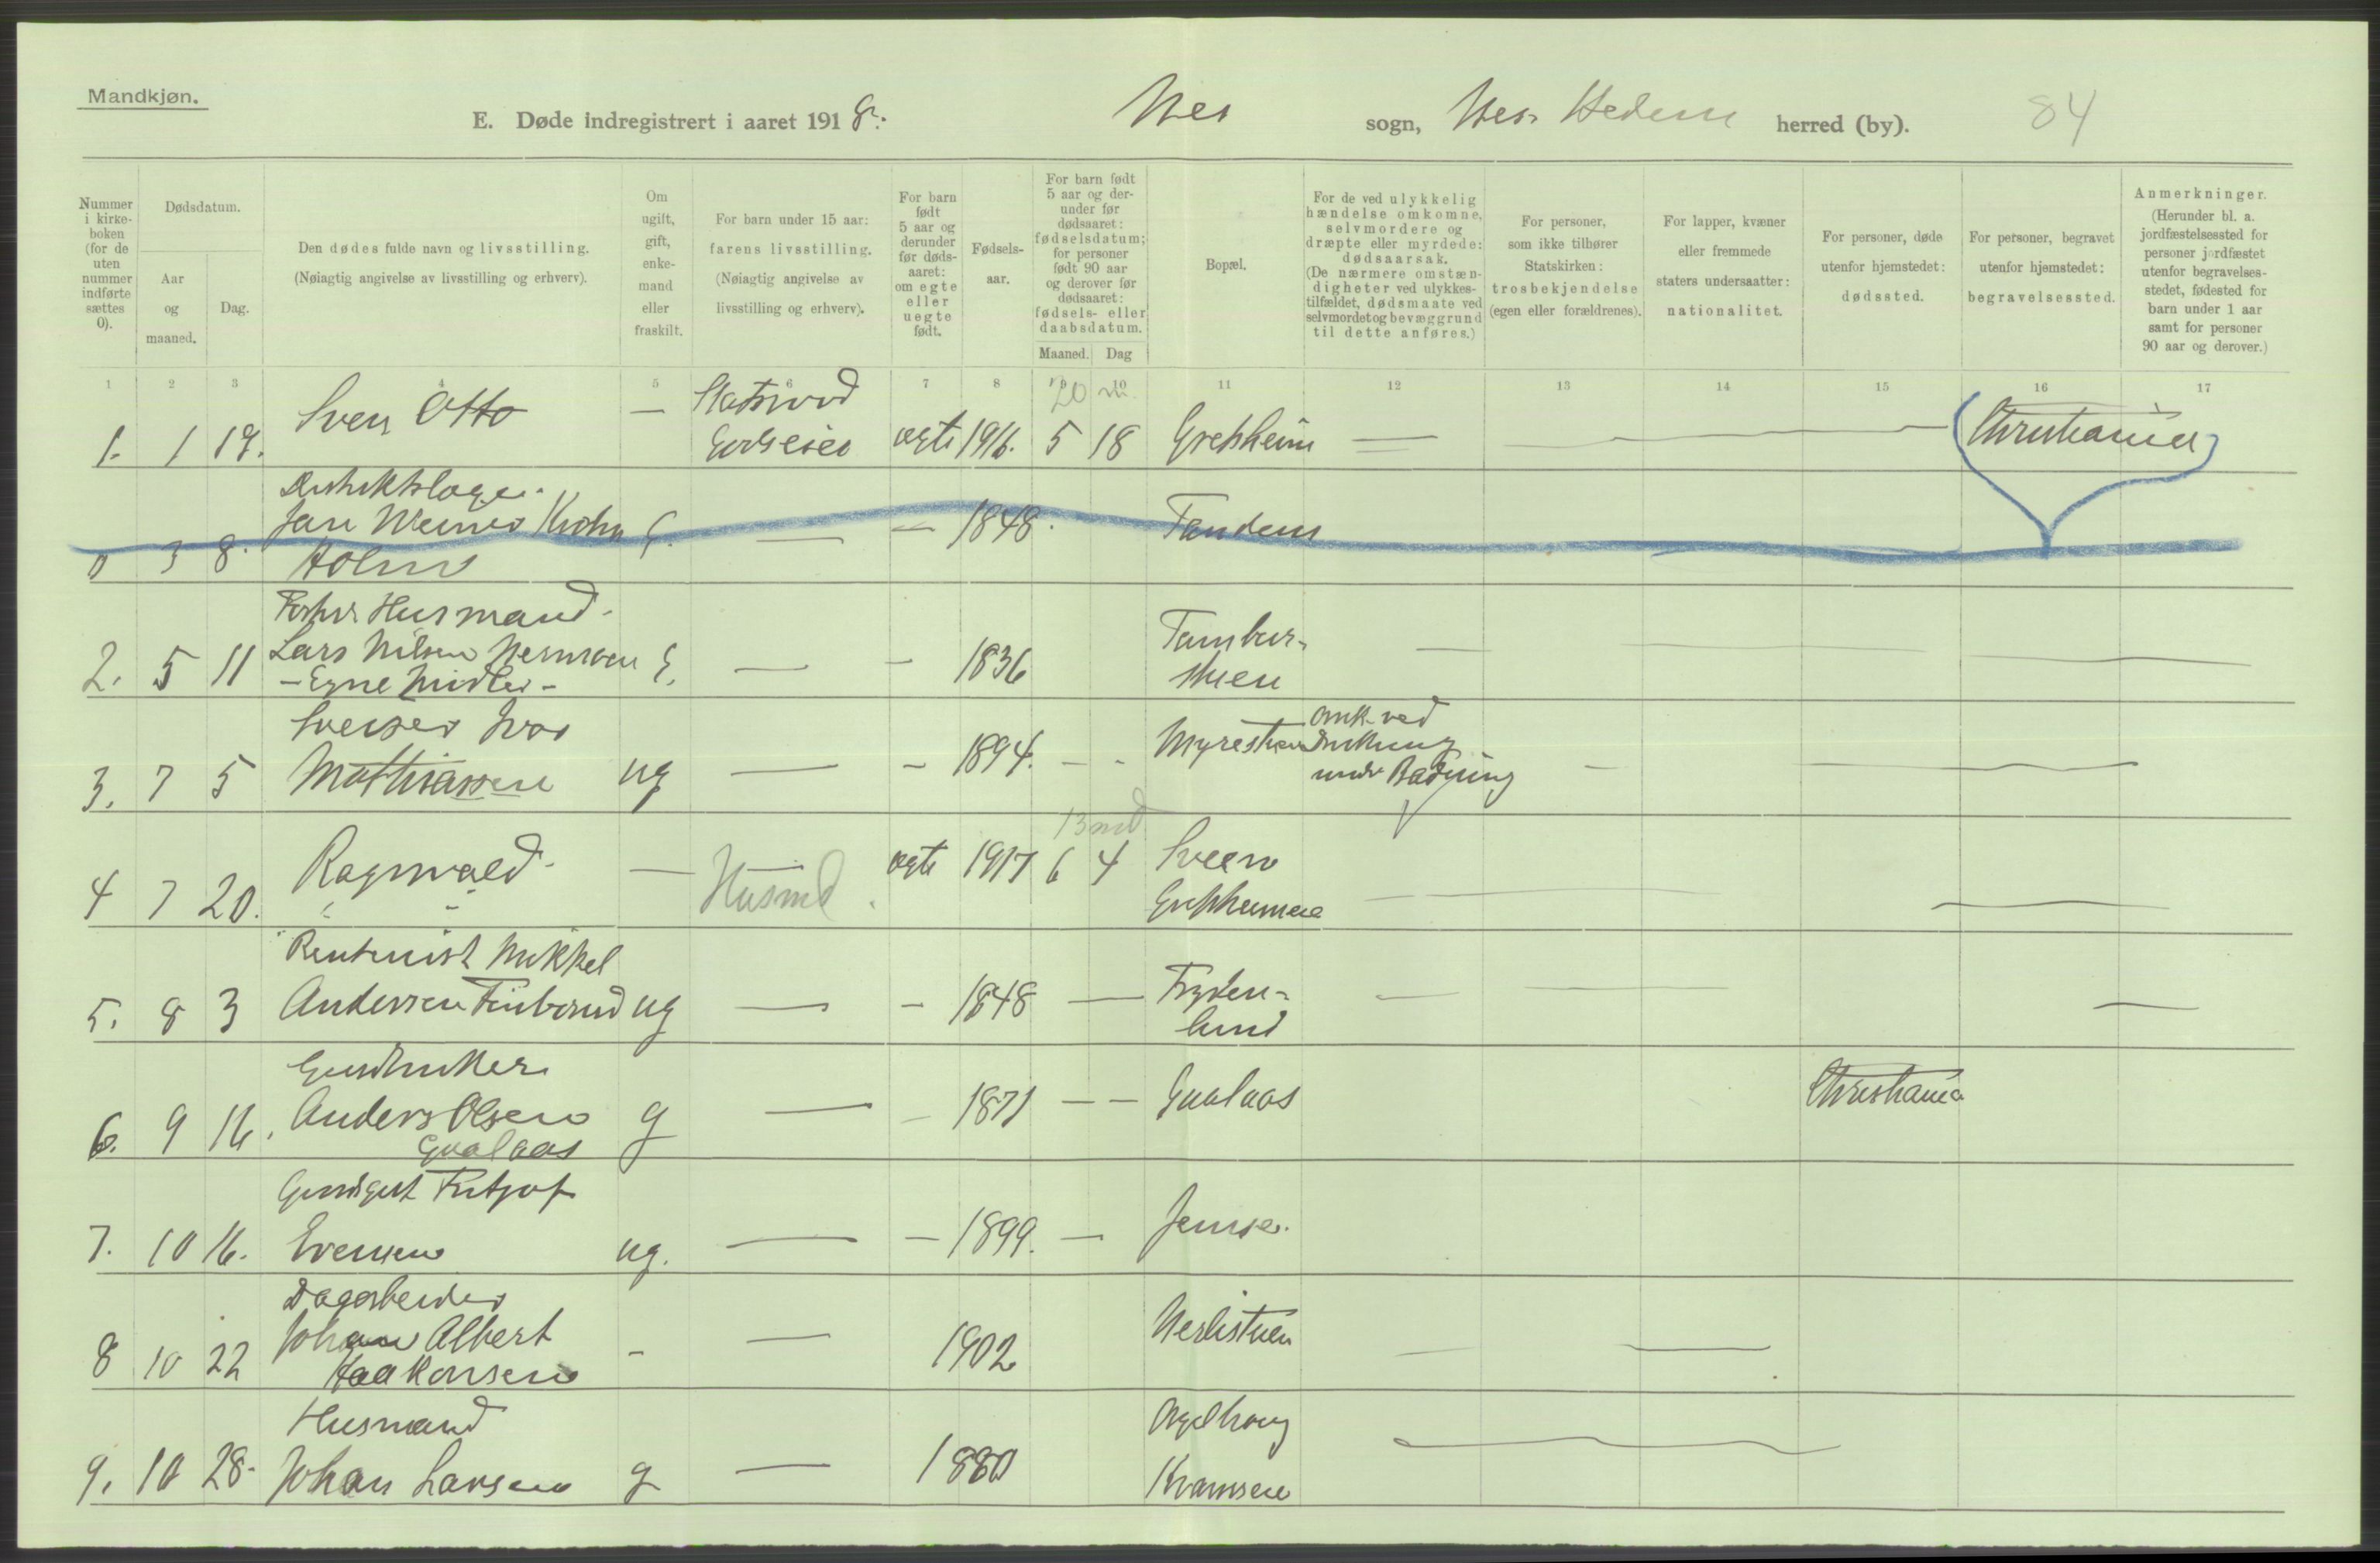 Mandkjøn.
E. Døde indregistrert i aaret 1918. Nes sogn, Nes Hedem herred (by). 84
Nummer i kirke-boken (for de uten nummer indførte sættes 0).
Dødsdatum.
Aar og maaned.
Dag.
Den dødes fulde navn og livsstilling.
(Nøiagtig angivelse av livsstilling og erhverv).
Om ugift, gift, enke-mand eller fraskilt.
For barn under 15 aar: farens livsstilling. (Nøiagtig angivelse av livsstilling og erhverv).
For barn født 5 aar og derunder før døds-aaret: om egte eller uegte født.
Fødsels-aar.
For barn født 5 aar og der-under før dødsaaret: fødselsdatum; for personer født 90 aar og derover før dødsaaret: fødsels- eller daabsdatum.
Maaned. Dag
Bopæl.
For de ved ulykkelig hændelse omkomne, selvmordere og dræpte eller myrdede: dødsaarsak. (De nærmere omstæn-digheter ved ulykkes-tilfældet, dødsmaate ved selvmordet og bevæggrund til dette anføres.)
For personer, som ikke tilhører Statskirken: trosbekjendelse (egen eller forældrenes).
For lapper, kvæner eller fremmede staters undersaatter: nationalitet.
For personer, døde utenfor hjemstedet: dødssted.
For personer, begravet utenfor hjemstedet: begravelsessted.
Anmerkninger. (Herunder bl. a. jordfæstelsessted for personer jordfæstet utenfor begravelses-stedet, fødested for barn under 1 aar samt for personer 90 aar og derover.)
1 2 3 4 5 6 7 8 9 10 11 12 13 14 15 16 17
20 m.
Sven Otto — Statsraad
1. 1 19. Godseier egte 1916. 5 18 Grefsheim — — Christiania
Distriktslæge
Jan Werner Krohn G. — — 1848. Tanden
0 3 8. Holm
Forhv. Husmand
2. 5 11 Lars Nilsen Nermoen E. — — 1836 Tambur-
- Egne Midler - stuen
Sveiser Ivar omk. ved
3. 7 5 Mathiassen ug — - 1894. - - Myrestuen Drukning
under Badning
13 md
4 7 20. Ragnvald — Husmd. egte 1917 6 4 Sveen
Grefsheimeie
Rentenist Mikkel
5. 8 3 Andersen Finborud ug — - 1848 — Fryden-
lund
Gaardbruker
6. 9 16. Anders Olsen g — - 1871 - - Gualaas Christiania
Gualaas
Gaardgut Fritjof
7. 10 16. Evensen ug. — - 1899. - Jemse.
Dagarbeider
8 10 22 Johan Albert - — 1902 Nerlistuen
Haakonsen
Husmand
9. 10 28. Johan Larsen g — 1880 Agelhaug
Kvamseie